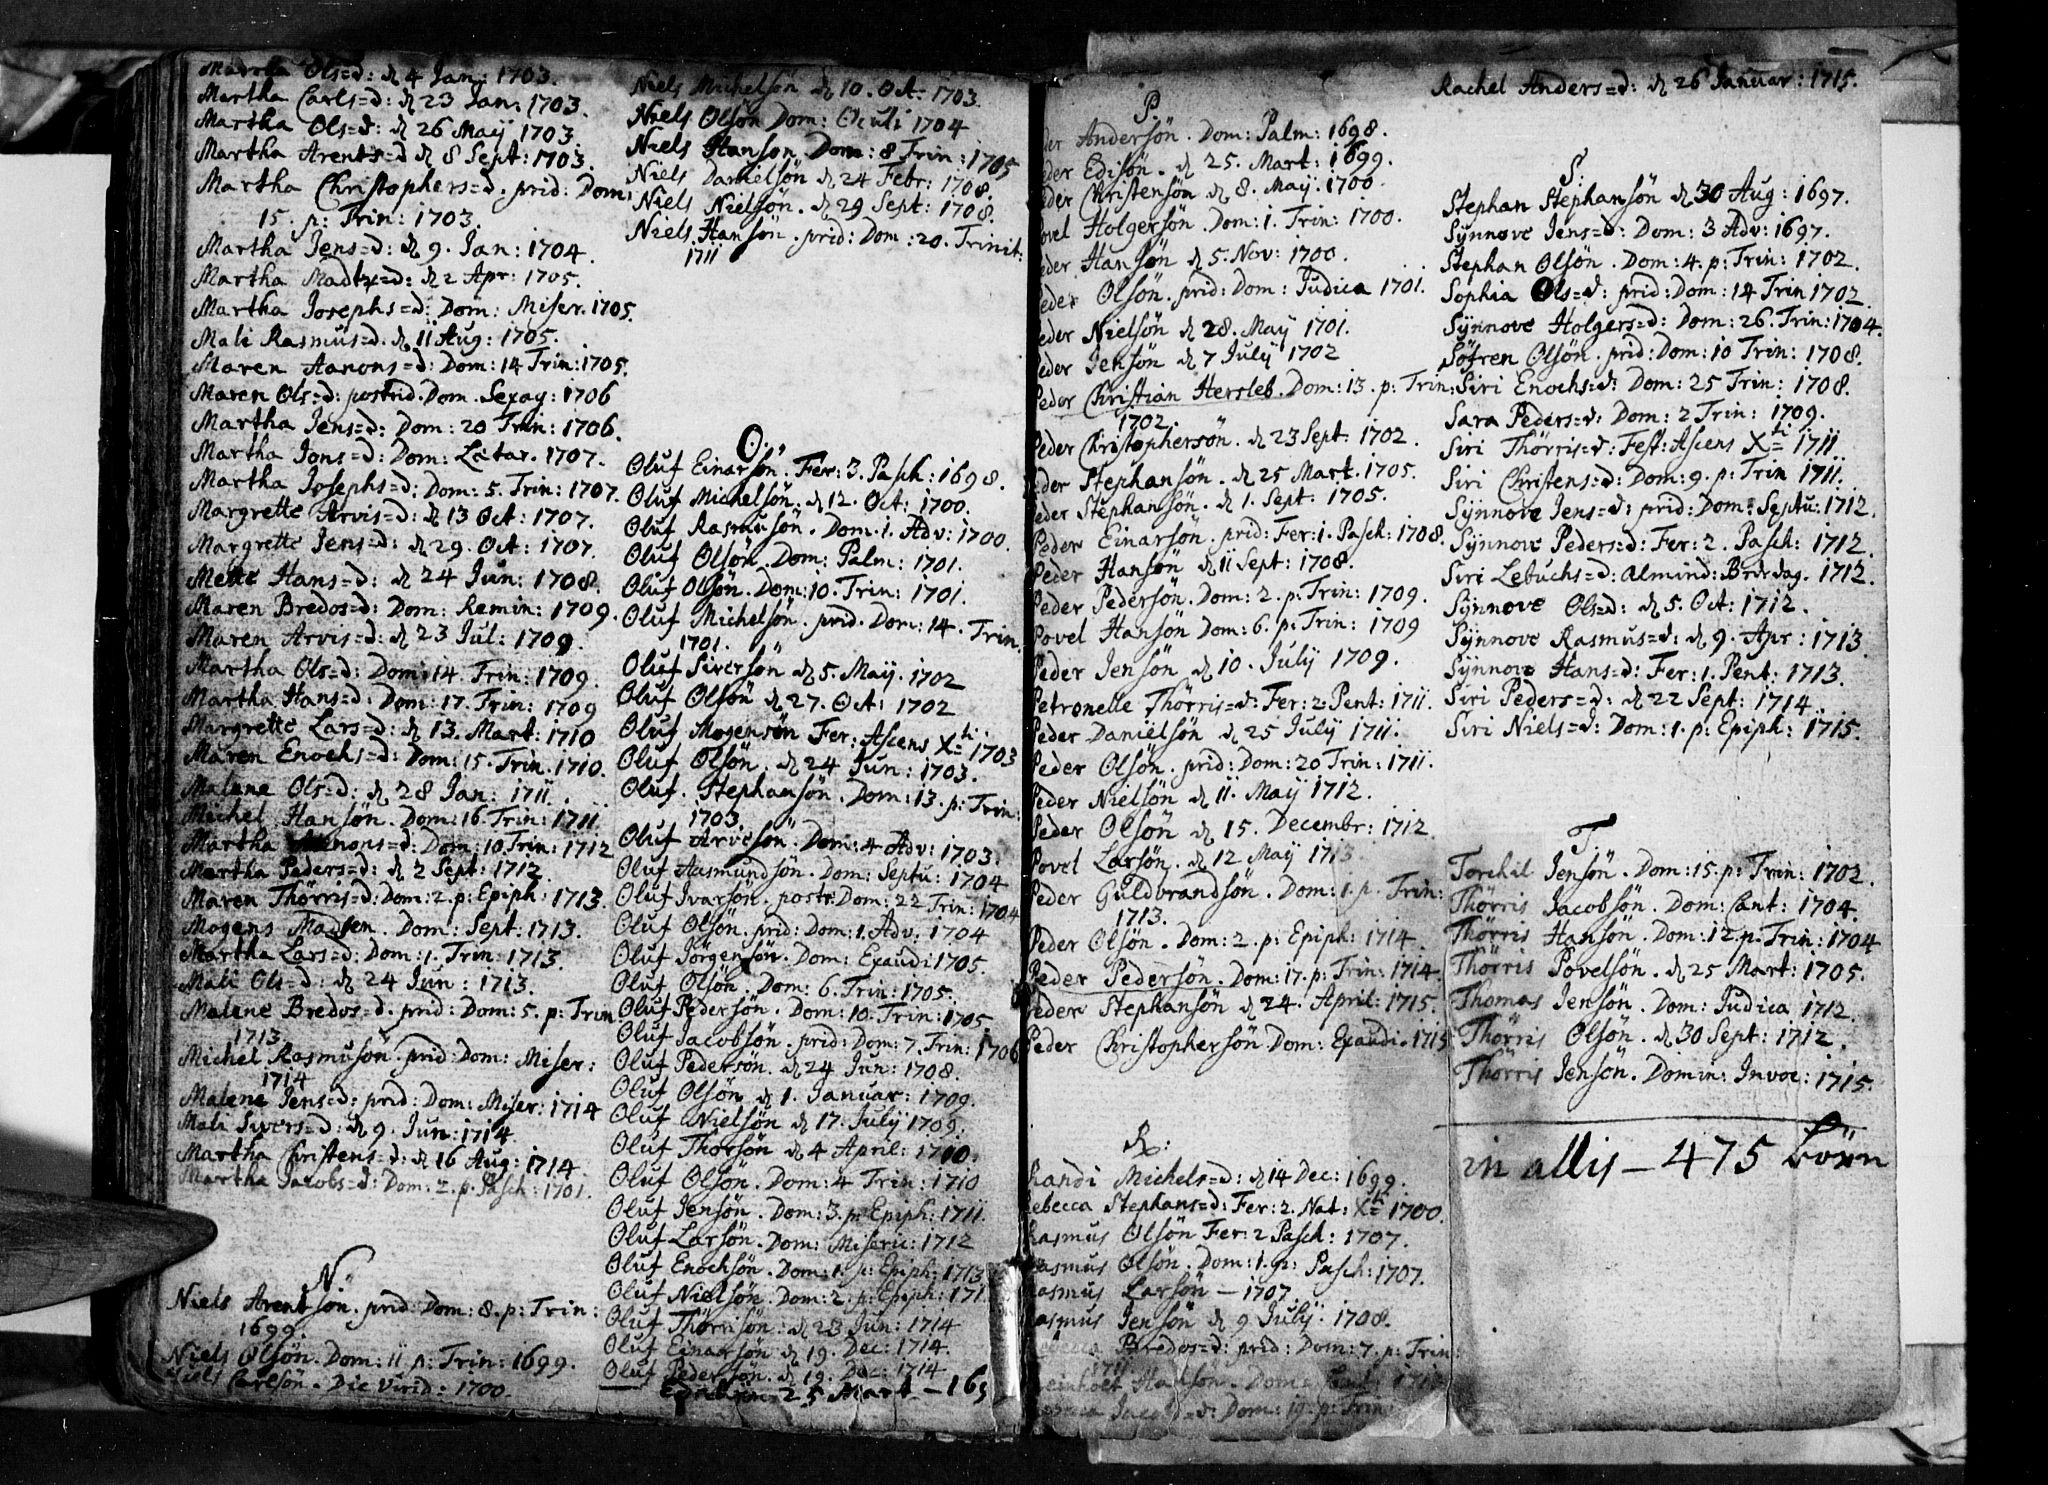 Martha Ols=d: d 4 Jan: 1703.
Martha Carls=d: d 23 Jan: 1703.
Martha Ols=d: d 26 Maÿ 1703.
Martha Arents=d d 8 Sept: 1703.
Martha Christophers=d. prid: Dom:
15. p: Trin: 1703.
Martha Jens=d: d 9. Jan: 1704.
Martha Madtz=d: d 2 Apr: 1705.
Martha Josephs=d: Dom: Miser. 1705.
Mali Rasmus=d. d 11 Aug: 1705.
Maren Hanons=d: Dom: 14 Trin: 1705.
Maren Ols=d: postrid. Dom. Sexag: 1706
Martha Jens=d: Dom: 20 Trin: 1706.
Martha Jons=d: Dom: Lætar. 1707.
Martha Josephs=d: Dom: 5. Trin: 1707.
Margrette Arvis=d: d 13 Oct: 1707.
Margrette Jens=d: d 29. Oct: 1707.
Mette Hans=d: d 24 Jun: 1708.
Maren Bredos=d: Dom: Remin: 1709.
Maren Arvis=d: d 23 Jul: 1709.
Martha Ols=d: Dom: 14 Trin: 1709.
Martha Hans=d: Dom: 17. Trin: 1709
Margrette Lars=d: d 13. Mart: 1710
Maren Enochs=d: Dom: 15. Trin. 1710.
Malene Ols=d: d 28 Jan: 1711.
Michel Hansön. Dom: 16. Trin: 1711.
Martha Hanons=d: Dom: 10 Trin: 1712
Martha Peders=d: d 2 Sept: 1712.
Maren Thörris=d: Dom: 2. p: Epiph: 1713.
Mogens Madsen. Dom: Sept: 1713.
Martha Lars=d: Dom: 1. Trin: 1713.
Mali Ols=d: d 24 Jun: 1713.
Malene Bredos=d. prid: Dom: 5. p: Trin
1713.
Michel Rasmusön. prid: Dom: Miser:
1714
Malene Jens=d: prid: Dom: Miser: 1714
Mali Sivers=d: d 9. Jun: 1714.
Martha Christens=d: d 16 Aug: 1714.
Martha Jacobs=d: Dom: 2. p. Pasch: 1701.
N.
Niels Arentsön. prid: Dom: 8. p: Trin:
1699.
Niels Olsön. Dom: 11 p: Trin: 1699.
Niels Carlsön. Die Virid: 1700.
Niels Michelsön d 10. Oct: 1703.
Niels Olsön Dom: Oculi 1704
Niels Hanson. Dom: 8 Trin: 1705
Niels Danielsön d 24 Febr: 1708.
Niels Nielsön. d 29 Sept: 1708.
Niels Hansön. prid: Dom: 20. Trinit:
1711
O.
Oluf Einarsön. Fer: 3. Pasch: 1698.
Oluf Michelsön. d 12. Oct: 1700.
Oluf Rasmusön. Dom. 1. Adv: 1700.
Oluf Olsön. Dom: Palm: 1701.
Oluf Olsön. Dom: 10. Trin: 1701.
Oluf Michelsön. prid. Dom: 14. Trin.
1701.
Oluf Siversön d 5. Maÿ. 1702
Oluf Olsön d 27. Oct: 1702
Oluf Mogensön Fer: Ascens Xti. 1703
Oluf Olsön. d 24 Jun: 1703.
Oluf. Stephansön. Dom: 13. p: Trin:
1703.
Oluf Arvesön. Dom: 4 Adv: 1703.
Oluf Aasmundsön. Dom: Septu: 1704
Oluf Ivarsön. postr: Dom: 22 Trin: 1704
Oluf Olsön. prid: Dom: 1. Adv: 1704
Oluf Jörgensön. Dom: Exaudi 1705.
Oluf Olsön. Dom: 6. Trin: 1705.
Oluf Pedersön. Dom: 10. Trin: 1705.
Oluf Jacobsön. prid: Dom: 7. Trin: 1706
Oluf Pedersön. d 24 Jun: 1708.
Oluf Olsön d 1. Januar: 1709.
Oluf Nielsön d 17. Julÿ 1709.
Oluf Thorsön d 4 April: 1710.
Oluf Olsön. Dom: 4 Trin: 1710
Oluf Jensön. Dom: 3. p: Epiph: 1711.
Oluf Larsön. Dom: Miseric: 1712
Oluf Enochsön. Dom: 1. p: Epiph: 1713
Oluf Nielsön. Dom: 2. p: Epiph: 171
Oluf Thörrisön: d 23 Jun: 1714
Oluf Einarsön d 19. Dec: 1714.
Oluf Pedersön. d 19. Dec: 1714
25 Mart — 169
P.
der Andersön. Dom: Palm: 1698.
eder Edisön. d 25. Mart: 1699.
eder Christensön d 8. Maÿ. 1700.
ovel Holgersön. Dom: 1. Trin: 1700.
eder Hansön d 5. Nov: 1700.
eder Olsön. prid: Dom: Judica 1701.
eder Nielsön d 28. Maÿ 1701.
eder Jensön d 7 Julÿ 1702
Peder Christian Hersleb. Dom: 13. p: Trin:
1702.
Peder Christophersön. d 23 Sept: 1702.
eder Stephansön. d 25 Mart. 1705.
eder Stephansön. d 1. Sept: 1705.
Peder Einarsön. prid: Fer: 1. Pasch: 1708.
Peder Hansön d 11 Sept: 1708.
Peder Pedersön. Dom: 2. p: Trin: 1709.
Povel Hansön Dom: 6. p: Trin: 1709
Peder Jensön d 10. Julÿ 1709.
Petronelle Thörris=d: Fer: 2. Pent: 1711.
Peder Daniëlsön d 25 Julÿ 1711.
Peder Olsön. prid: Dom: 20 Trin: 1711.
Peder Nielsön d 11. Maÿ 1712.
Peder Olsön d 15. Decembr: 1712.
Povel Larsön. d 12 May 1713.
Peder Guldbrandsön. Dom: 1. p. Trin:
1713.
Peder Olsön. Dom: 2. p: Epiph: 1714.
Peder Pedersön. Dom: 17. p: Trin: 1714.
Peder Stephansön d 24. April: 1715.
Peder Christophersön Dom: Exaudi. 1715
R:
Randi Michels=d: d 14 Dec: 1699.
ebecca Stephans=d: Fer: 2. Nat: Xti 1700.
asmus Olsön Fer: 2 Pasch: 1707.
asmus Olsön. Dom: 1. p: Pasch: 1707.
asmus Larsön — 1707.
asmus Jensön d 9 Julÿ: 1708.
ebecca Bredos=d: prid: Dom: 7. p: Trin:
einholt Hansön. Dom:
Jacobs=d: Dom: 19. p: Trin:
Rachel Anders=d: d 26 Januar: 1715.
S.
Stephan Stephansön d 30 Aug: 1697.
Sÿnnove Jens=d: Dom: 3 Adv: 1697.
Stephan Olsön. Dom: 4. p: Trin: 1702.
Sophia Ols=d: prid: Dom: 14 Trin 1702.
Sÿnnove Holgers=d: Dom: 26. Trin: 1704.
Söfren Olsön. prid: Dom: 10 Trin: 1708.
Siri Enochs=d: Dom: 25 Trin: 1708.
Sara Peders=d: Dom: 2 Trin: 1709.
Siri Thörris=d: Fest: Ascens Xti 1711.
Siri Christens=d: Dom: 9. p: Trin 1711.
Sÿnnove Jens=d: prid: Dom: Septu: 1712.
Sÿnnove Peders=d: Fer: 2. Pasch: 1712.
Siri Lebuchs=d: Almind: Beededag. 1712.
Sÿnnove Ols=d: d 5. Oct: 1712.
Sÿnnove Rasmus=d: d 9. Apr: 1713.
Sÿnnove Hans=d: Fer: 1. Pent: 1713.
Siri Peders=d: d 22 Sept: 1714.
Siri Niels=d: Dom: 1. p: Epiph: 1715.
T.
Torchil Jensön. Dom: 15. p: Trin: 1702.
Thörris Jacobsön. Dom: Cant: 1704.
Thörris Hansön. Dom: 12. p. Trin: 1704
Thörris Povelsön. d 25 Mart: 1705.
Thomas Jensön. Dom: Judica 1712.
Thörris Olsön. d 30 Sept: 1712.
Thörris Jensön. Domin: Invoc: 1715.
in allis — 475 Börn